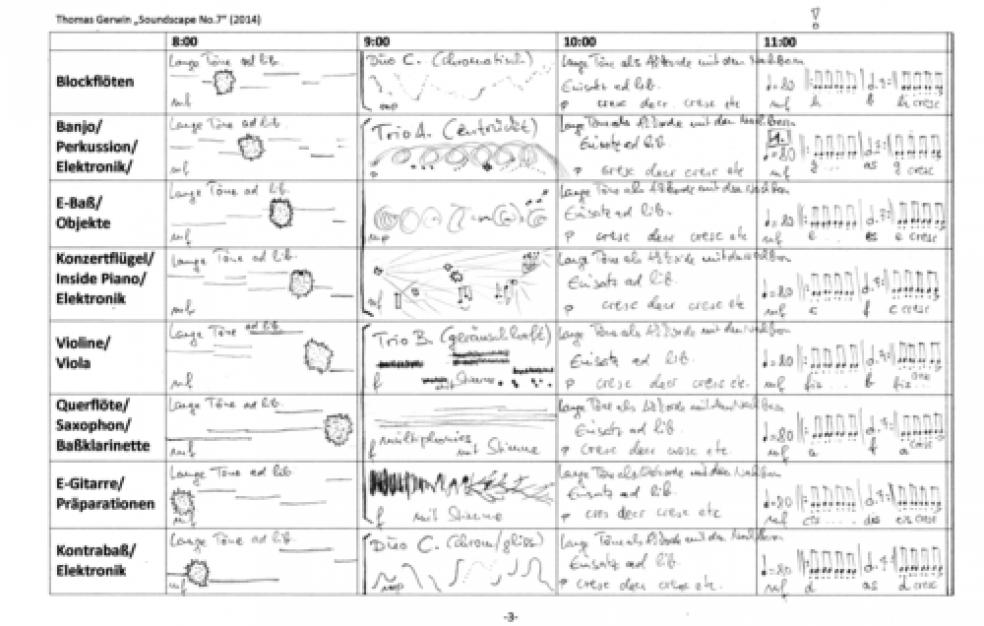 Thomas Gerwin „Soundscape No.7" (2014)
8:00 9:00 10:00 11:00
Blockflöten
Lange Töne ad lib.
mf
Duo C. (chromatisch)
mp
Lange Töne als Akkorde mit den Nachbarn
Einsatz ad lib.
p cresc decr cresc etc
♩=80
mf h b h cresc
Banjo/
Perkussion/
Elektronik/
Lange Töne ad lib.
mf
Trio A. (entrückt)
Lange Töne als Akkorde mit den Nachbarn
Einsatz ad lib.
p cresc decr cresc etc
♩=80
mf g... as g cresc
E-Baß/
Objekte
Lange Töne ad lib.
mf
mp
Lange Töne als Akkorde mit den Nachbarn
Einsatz ad lib.
p cresc decr cresc etc
♩=80
mf e... es e cresc
Konzertflügel/
Inside Piano/
Elektronik
Lange Töne ad lib.
mf
mf
Lange Töne als Akkorde mit den Nachbarn
Einsatz ad lib.
p cresc decr cresc etc
♩=80
mf
Violine/
Viola
Lange Töne ad lib.
mf
Trio B. (geräuschhaft)
f mit Stimme
Lange Töne als Akkorde mit den Nachbarn
Einsatz ad lib.
p cresc decr cresc etc.
♩=80
mf fis... b fis... cresc
Querflöte/
Saxophon/
Baßklarinette
Lange Töne ad lib.
mf
f multiphonics
mit Stimme
Lange Töne als Akkorde mit den Nachbarn
Einsatz ad lib.
p cresc decr cresc etc.
♩=80
mf a f a cresc
E-Gitarre/
Präparationen
Lange Töne ad lib
mf
f mit Stimme
Lange Töne als Akkorde mit den Nachbarn
Einsatz ad lib.
p cres decr cresc etc
♩=80
mf cis.... des cis cresc
Kontrabaß/
Elektronik
Lange Töne ad lib.
mf
Duo C. (chrom/gliss)
mp
Lange Töne als Akkorde mit den Nachbarn
Einsatz ad lib.
p cresc decr cresc etc.
♩=80
mf d as d cresc
-3-